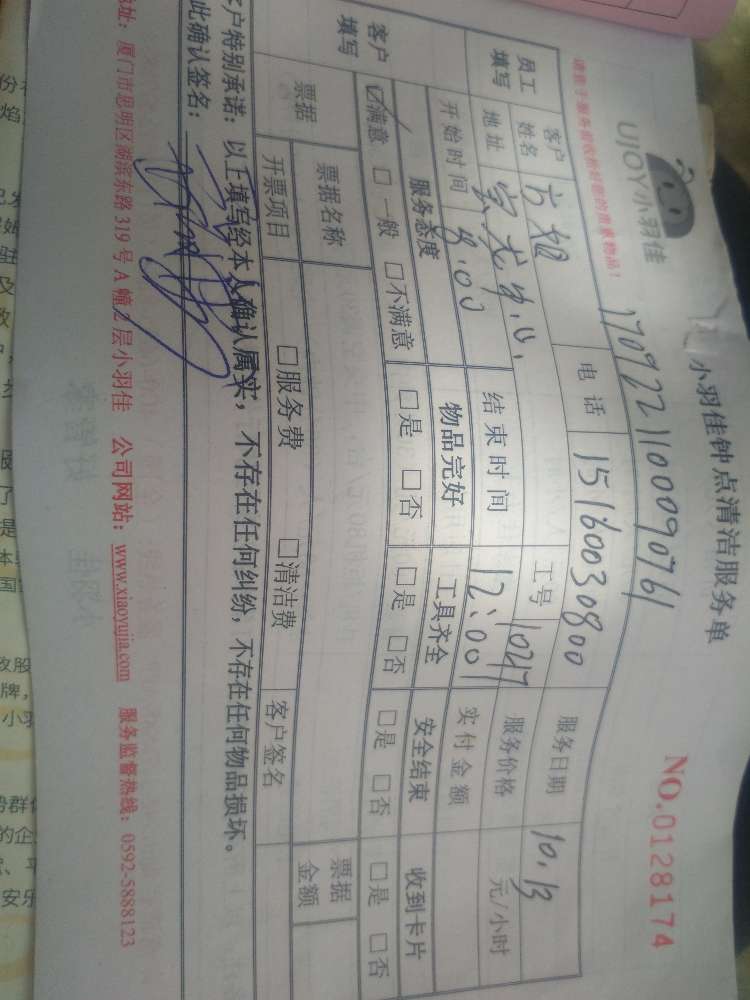 UJOY小羽佳
小羽佳钟点清洁服务单
NO.0128174
170922110090761
请您于服务前收拾好您的贵重物品！
员工填写 客户姓名 方姐 电话 15160030800 服务日期 10.13
地址 宏龙中心 工号 10217 服务价格 元/小时
开始时间 8:00 结束时间 12:00 实付金额
客户填写 服务态度 物品完好 工具齐全 安全结束 收到卡片
☑满意 □一般 □不满意 □是 □否 □是 □否 □是 □否 □是 □否
票据 票据名称 票据金额
开票项目 □服务费 □清洁费 客户签名
客户特别承诺：以上填写经本人确认属实，不存在任何纠纷，不存在任何物品损坏。
此确认签名：
地址：厦门市思明区湖滨东路319号A幢2层小羽佳 公司网站：www.xiaoyujia.com 服务监督热线：0592-5888123